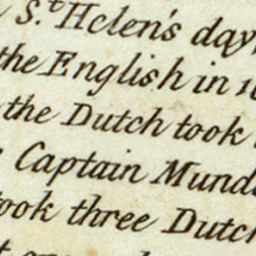 S.t Helen's day
the English in 1
the Dutch took
Captain Mund
took three Dutch